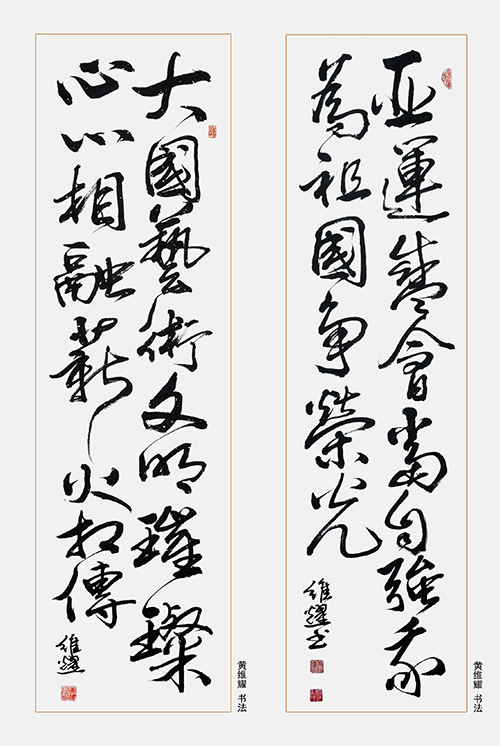 亚運盛會當自强我
為祖國争榮光
維耀书
黄维耀 书法
大國藝術文明璀璨
心心相融薪火相傳
維耀
黄维耀 书法